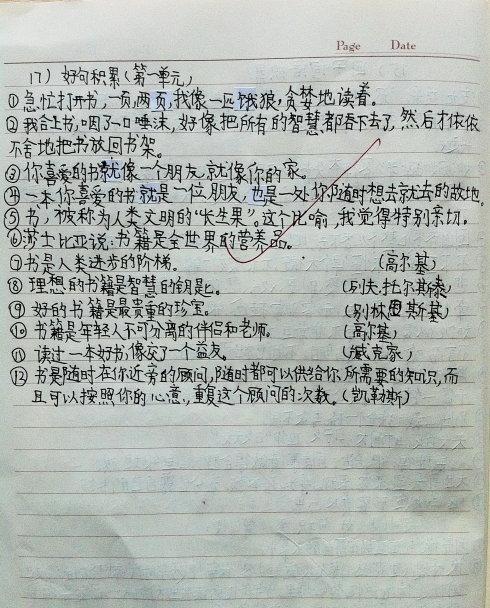 Page Date
17) 好句积累(第一单元)
①急忙打开书,一页,两页,我像一匹饿狼,贪婪地读着。
②我合上书,咽了一口唾沫,好像把所有的智慧都吞下去了,然后才依依
不舍地把书放回书架。
③你喜爱的书就像一个朋友,就像你的家。
④一本你喜爱的书就是一位朋友,也是一处你随时想去就去的故地。
⑤书,被称为人类文明的“长生果”。这个比喻,我觉得特别亲切。
⑥莎士比亚说:书籍是全世界的营养品。
⑦书是人类进步的阶梯。 (高尔基)
⑧理想的书籍是智慧的钥匙。 (列夫.托尔斯泰)
⑨好的书籍是最贵重的珍宝。 (别林思斯基)
⑩书籍是年轻人不可分离的伴侣和老师。 (高尔基)
⑪读过一本好书,像交了一个益友。 (臧克家)
⑫书是随时在你近旁的顾问,随时都可以供给你所需要的知识,而
且可以按照你的心意,重复这个顾问的次数。(凯勒斯)